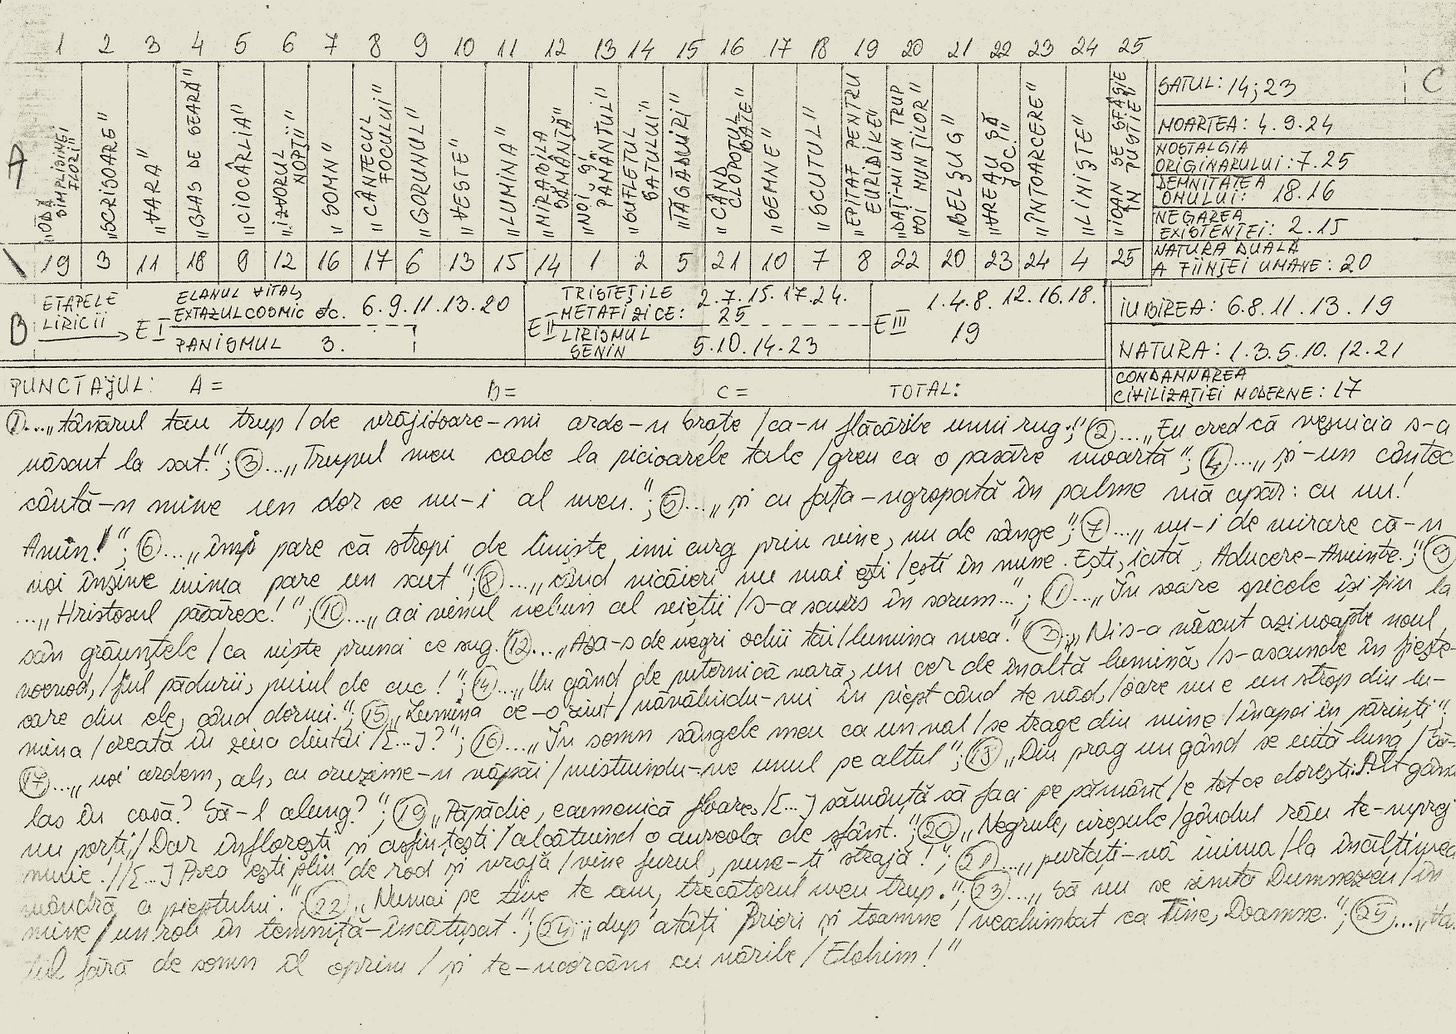 1 2 3 4 5 6 7 8 9 10 11 12 13 14 15 16 17 18 19 20 21 22 23 24 25
A
„ODĂ SIMPLISIMEI FLORI"
„SCRISOARE"
„VARA"
„GLAS DE SEARĂ"
„CIOCÂRLIA"
„IZVORUL NOPȚII"
„SOMN"
„CÂNTECUL FOCULUI"
„GORUNUL"
„VESTE"
„LUMINA"
„MIRABILA SĂMÂNȚĂ"
„NOI ȘI PĂMÂNTUL"
„SUFLETUL SATULUI"
„TĂGĂDUIRI"
„CÂND CLOPOTUL BATE"
„SEMNE"
„SCUTUL"
„EPITAF PENTRU EURIDIKE"
„DAȚI-MI UN TRUP VOI MUNȚILOR"
„BELȘUG"
„VREAU SĂ JOC."
„ÎNTOARCERE"
„LINIȘTE"
„IOAN SE SFÂȘIE ÎN PUSTIE"
19 3 11 18 9 12 16 17 6 13 15 14 1 2 5 21 10 7 8 22 20 23 24 4 25
C
SATUL: 14; 23
MOARTEA: 4. 9. 24
NOSTALGIA
ORIGINARULUI: 7. 25
DEMNITATEA
OMULUI: 18. 16
NEGAREA
EXISTENȚEI: 2. 15
NATURA DUALĂ
A FIINȚEI UMANE: 20
IUBIREA: 6.8. 11. 13. 19
NATURA: 1. 3. 5. 10. 12. 21
CONDAMNAREA
CIVILIZAȚIEI MODERNE: 17
B
ETAPELE
LIRICII
E I
ELANUL VITAL,
EXTAZUL COSMIC etc. 6. 9. 11. 13. 20
PANISMUL 3.
E II
TRISTEȚILE
METAFIZICE: 2. 7. 15. 17. 24.
25
LIRISMUL
SENIN 5. 10. 14. 23
E III
1. 4. 8. 12. 16. 18.
19
PUNCTAJUL: A = B = C = TOTAL:
1 ...„tânărul tău trup / de vrăjitoare-mi arde-n brațe / ca-n flăcările unui rug."; 2 ...„Eu cred că veșnicia s-a
născut la sat."; 3 ...„Trupul meu cade la picioarele tale / greu ca o pasăre moartă"; 4 ...„și-un cântec
cântă-n mine un dor ce nu-i al meu."; 5 ...„și cu fața-ngropată în palme mă apăr: eu nu!
Amin!"; 6 ...„îmi pare că stropi de liniște îmi curg prin vine, nu de sânge"; 7 ...„nu-i de mirare că-n
noi înșine inima pare un scut"; 8 ...„când nicăieri nu mai ești / ești în mine. Ești, iată, Aducere-Aminte."; 9
...„Hristosul păsăresc!"; 10 ...„aci veninul nebun al vieții / s-a scurs în scrum..."; 11 ...„În soare spicele își țin la
sân grăunțele / ca niște prunci ce sug. 12 ...„Așa-s de negri ochii tăi / lumina mea." 13 „Ni s-a născut azinoapte noul
voevod, / fiul pădurii, puiul de cuc!"; 14 ...„Un gând de puternică vară, un cer de înaltă lumină, / s-ascunde în fiește-
care din ele, când dorm."; 15 „Lumina ce-o simt / năvălindu-mi în piept când te văd, / oare nu e un strop din lu-
mina / creată în ziua dintâi / [...]?"; 16 ...„În somn sângele meu ca un val / se trage din mine / înapoi în părinți";
17 ...„noi ardem, ah, cu cruzime-n văpăi / mistuindu-ne unul pe altul"; 18 „Din prag un gând se uită lung / Să-l
las în casă? Să-l alung?"; 19 „Păpădie, ecumenică floare, / [...] sămânță să faci pe pământ / e tot ce dorești. Alt gând
nu porți / Dar înflorești și asfințești / alcătuind o aureolă de sfânt."; 20 „Negrule, cireșule / gândul rău te-mpreg
mine. // [...] Prea ești plin de rod și vrajă / vine furul, pune-ți strajă!"; 21 ...„purtați-vă inima / la înălțimea
mândră a pieptului." 22 „Numai pe tine te am, trecătorul meu trup."; 23 ...„Să nu se simtă Dumnezeu / în
mine / un rob în temniță-încătușat."; 24 „dup' atâți Prieri și toamne / neschimbat ca Tine, Doamne."; 25 ...„
fără de somn îl oprim / și te-ncercăm cu nările / Elohim!"